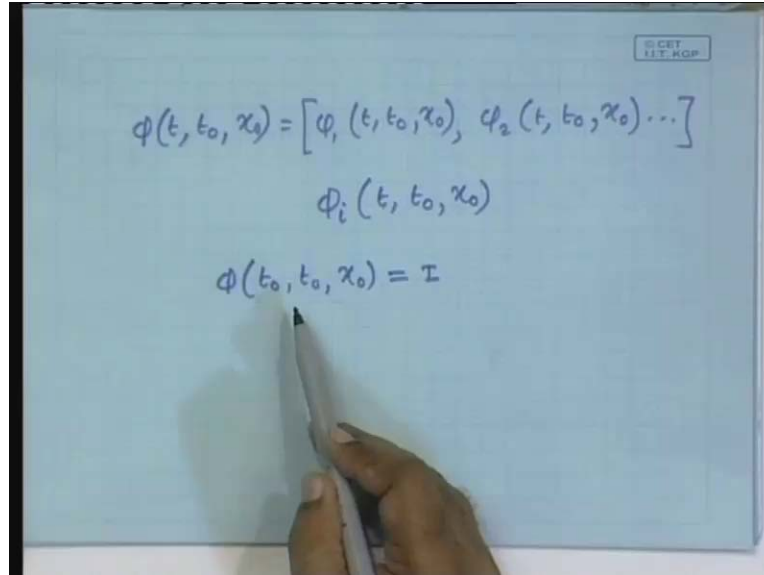 © CET
I.I.T. KGP
Φ(t, t₀, x₀) = [φ₁ (t, t₀, x₀), φ₂ (t, t₀, x₀) ···]
φᵢ (t, t₀, x₀)
Φ(t₀, t₀, x₀) = I